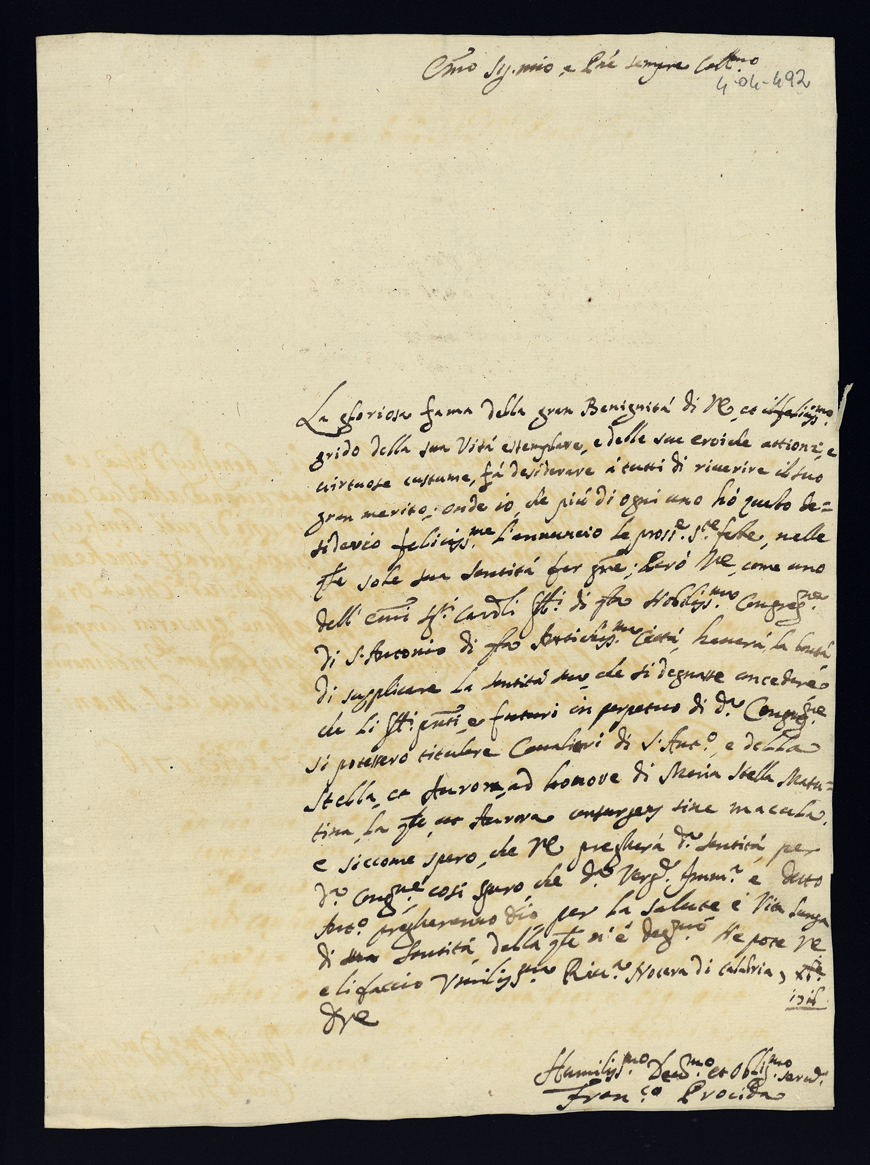 Em̃o Sig. mio, e Prẽ sempre Coll.mo
4-04-492
La gloriosa fama della gran Benignitá di VE, et il feliciss.mo
grido della sua Vitá essemplare, e delle sue eroiche attioni, e
virtuose custume, fá desiderare á tutti di riverire il suo
gran merito; onde io, che piú di ogni uno hó questo de=
siderio feliciss.me l'annuncio le pross.e S.te feste, nelle
q̃le sole sua Santitá far gr̃e; Peró VE, come uno
dell'Em̃i Sg.i Card̃li di q̃sta Nobiliss.ma Congreg.ne
di S. Antonio di q̃sta Antichiss.ma Cittá, haverá la bontá
di supplicare la Santitá sua, che si degnasse concedere
che li pñti, e futuri in perpetuo di d.a Congreg.ne
si potessero titulare Cavalieri di S. Ant.o, e della
Stella, et Aurora, ad honore di Maria Stella Matu=
tina, la q̃le, ut Aurora consurgens sine macula,
e siccome spero, che VE pregherá d.a Santitá, per
d.a Cong.ne, cosí spero, che d.a Verg.e Imm.a e detto
Ant.o pregheranno Dio per la salute e Vita lunga
di sua Santitá, della q̃le n'é
e li faccio Umiliss.ma Riv.a Nocera di Calabria,
DVE
Humiliss.mo Dev.mo et Oblig.mo Servid.
Fran.co Procida